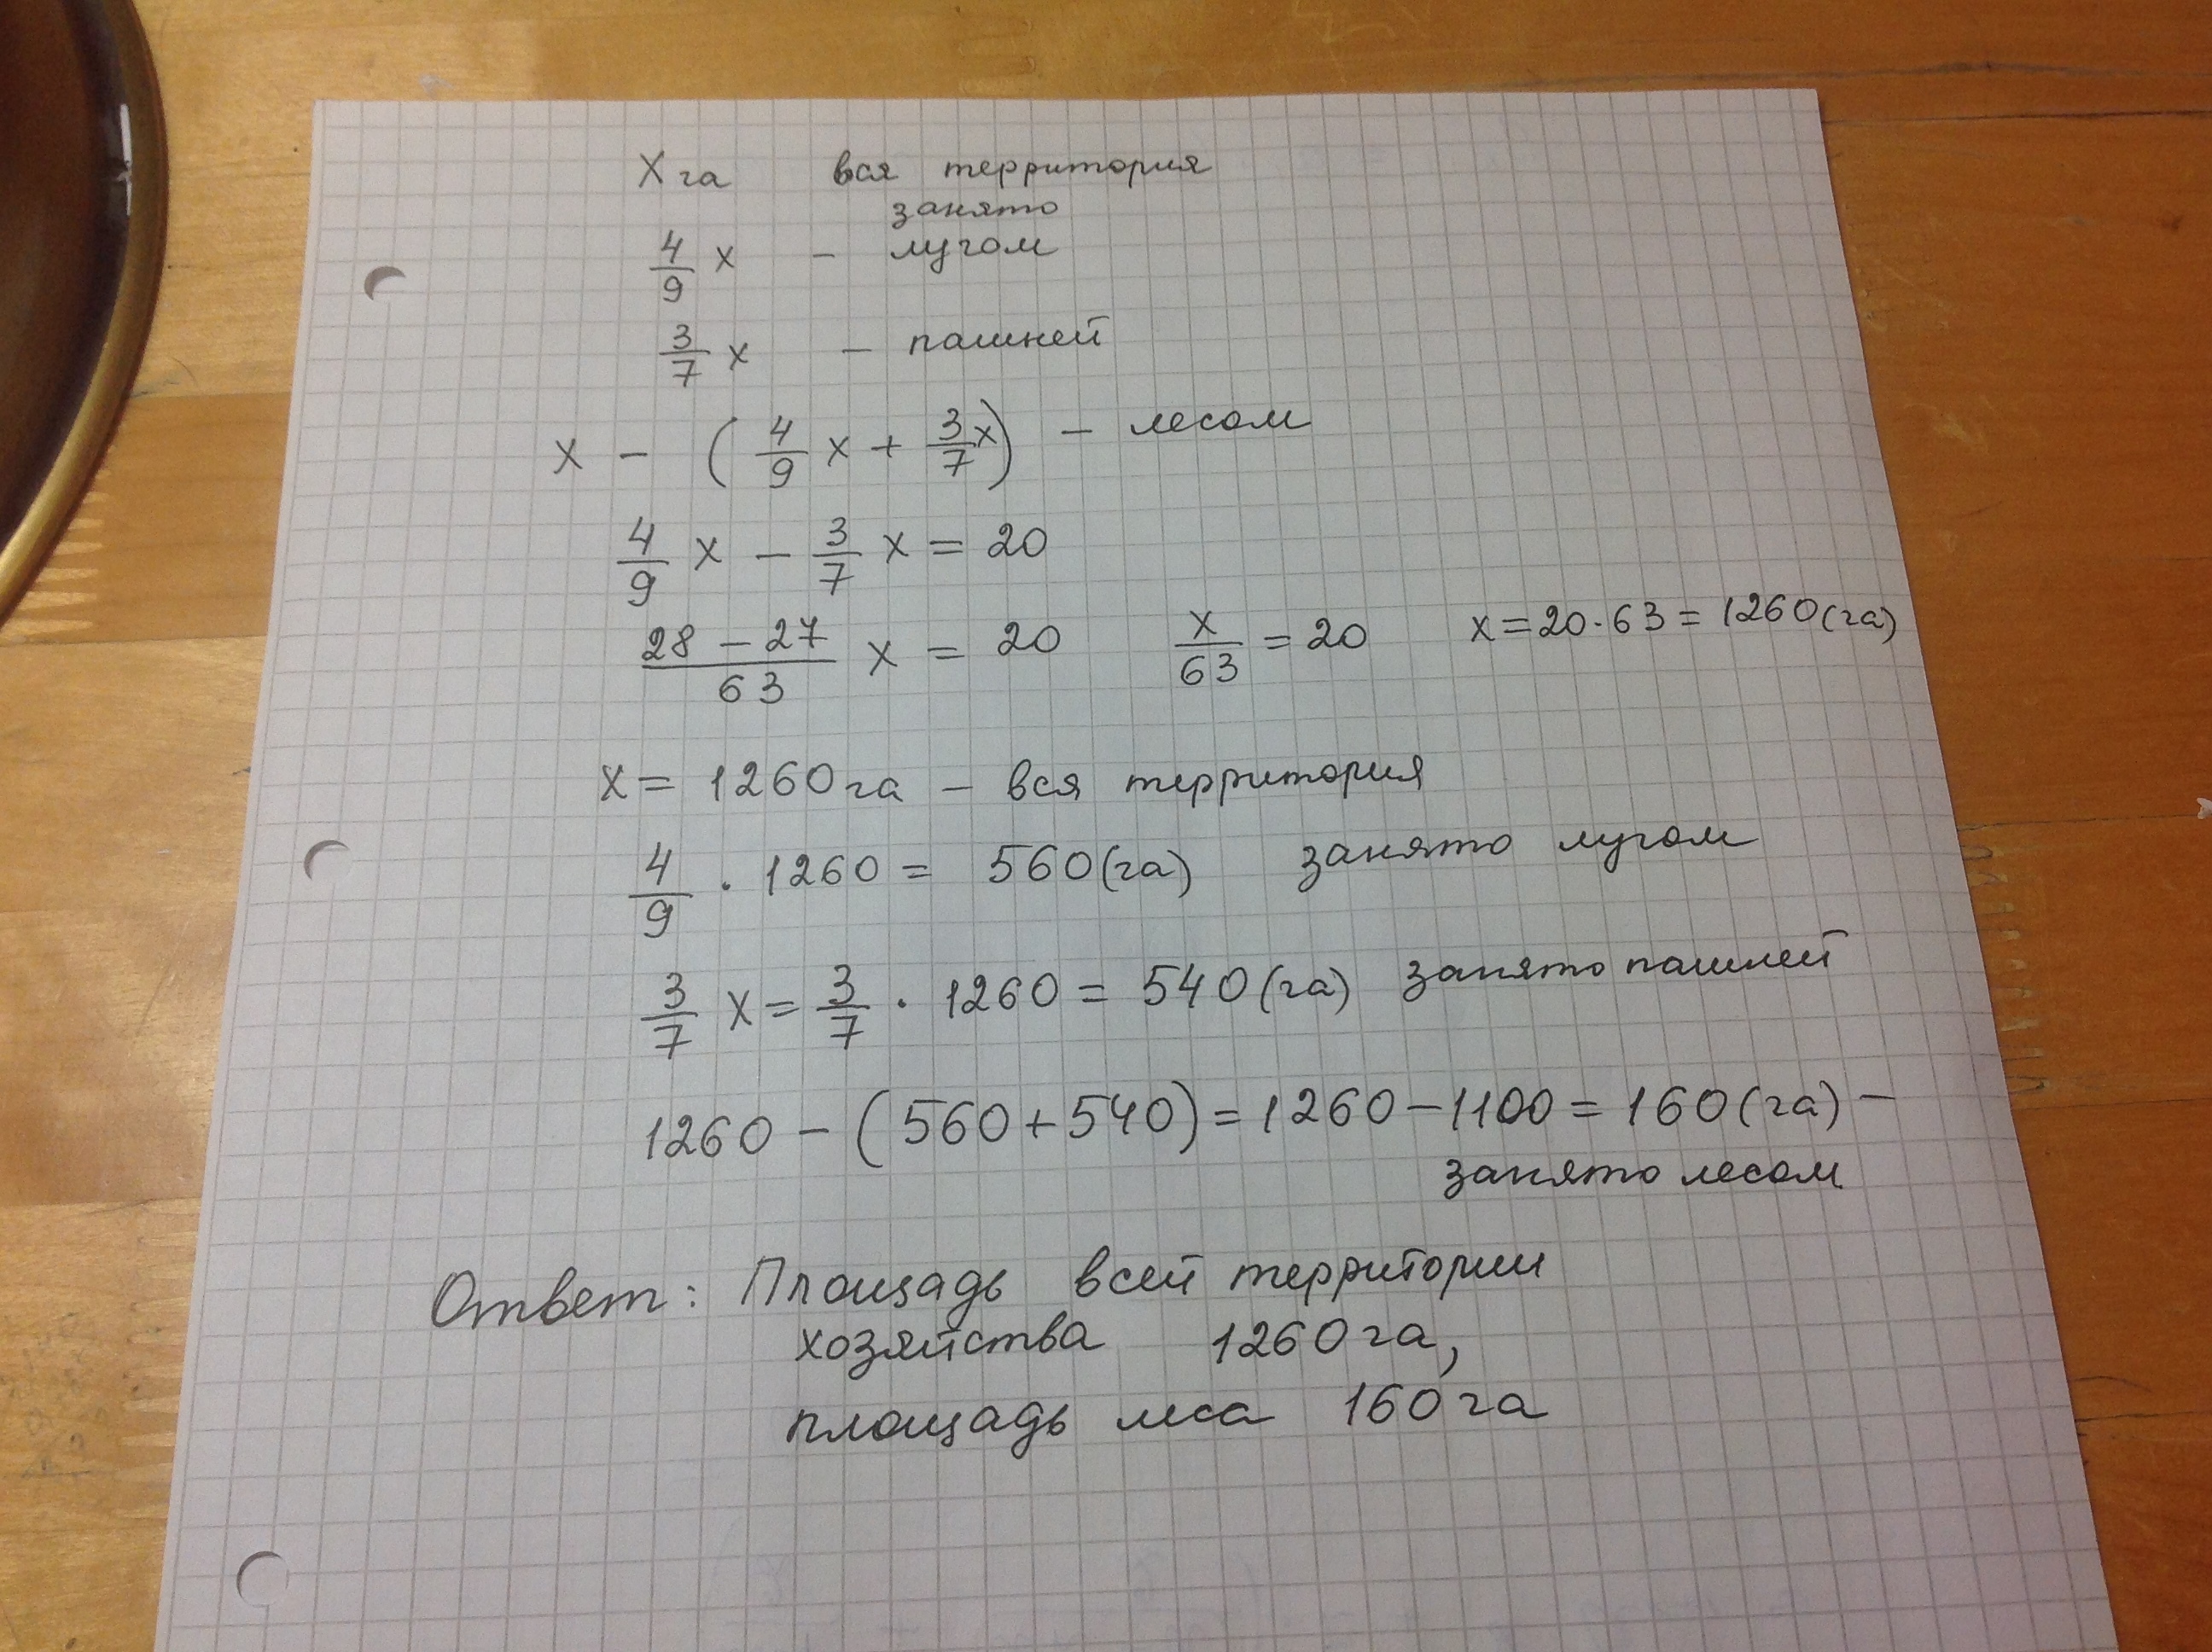 X га вся территория
занято
4/9 x - лугом
3/7 x - пашней
x - (4/9 x + 3/7 x) - лесом
4/9 x - 3/7 x = 20
28 - 27/63 x = 20 x/63 = 20 x = 20 · 63 = 1260 (га)
x = 1260 га - вся территория
4/9 · 1260 = 560 (га) занято лугом
3/7 x = 3/7 · 1260 = 540 (га) занято пашней
1260 - (560 + 540) = 1260 - 1100 = 160 (га) -
занято лесом
Ответ: Площадь всей территории
хозяйства 1260 га,
площадь леса 160 га